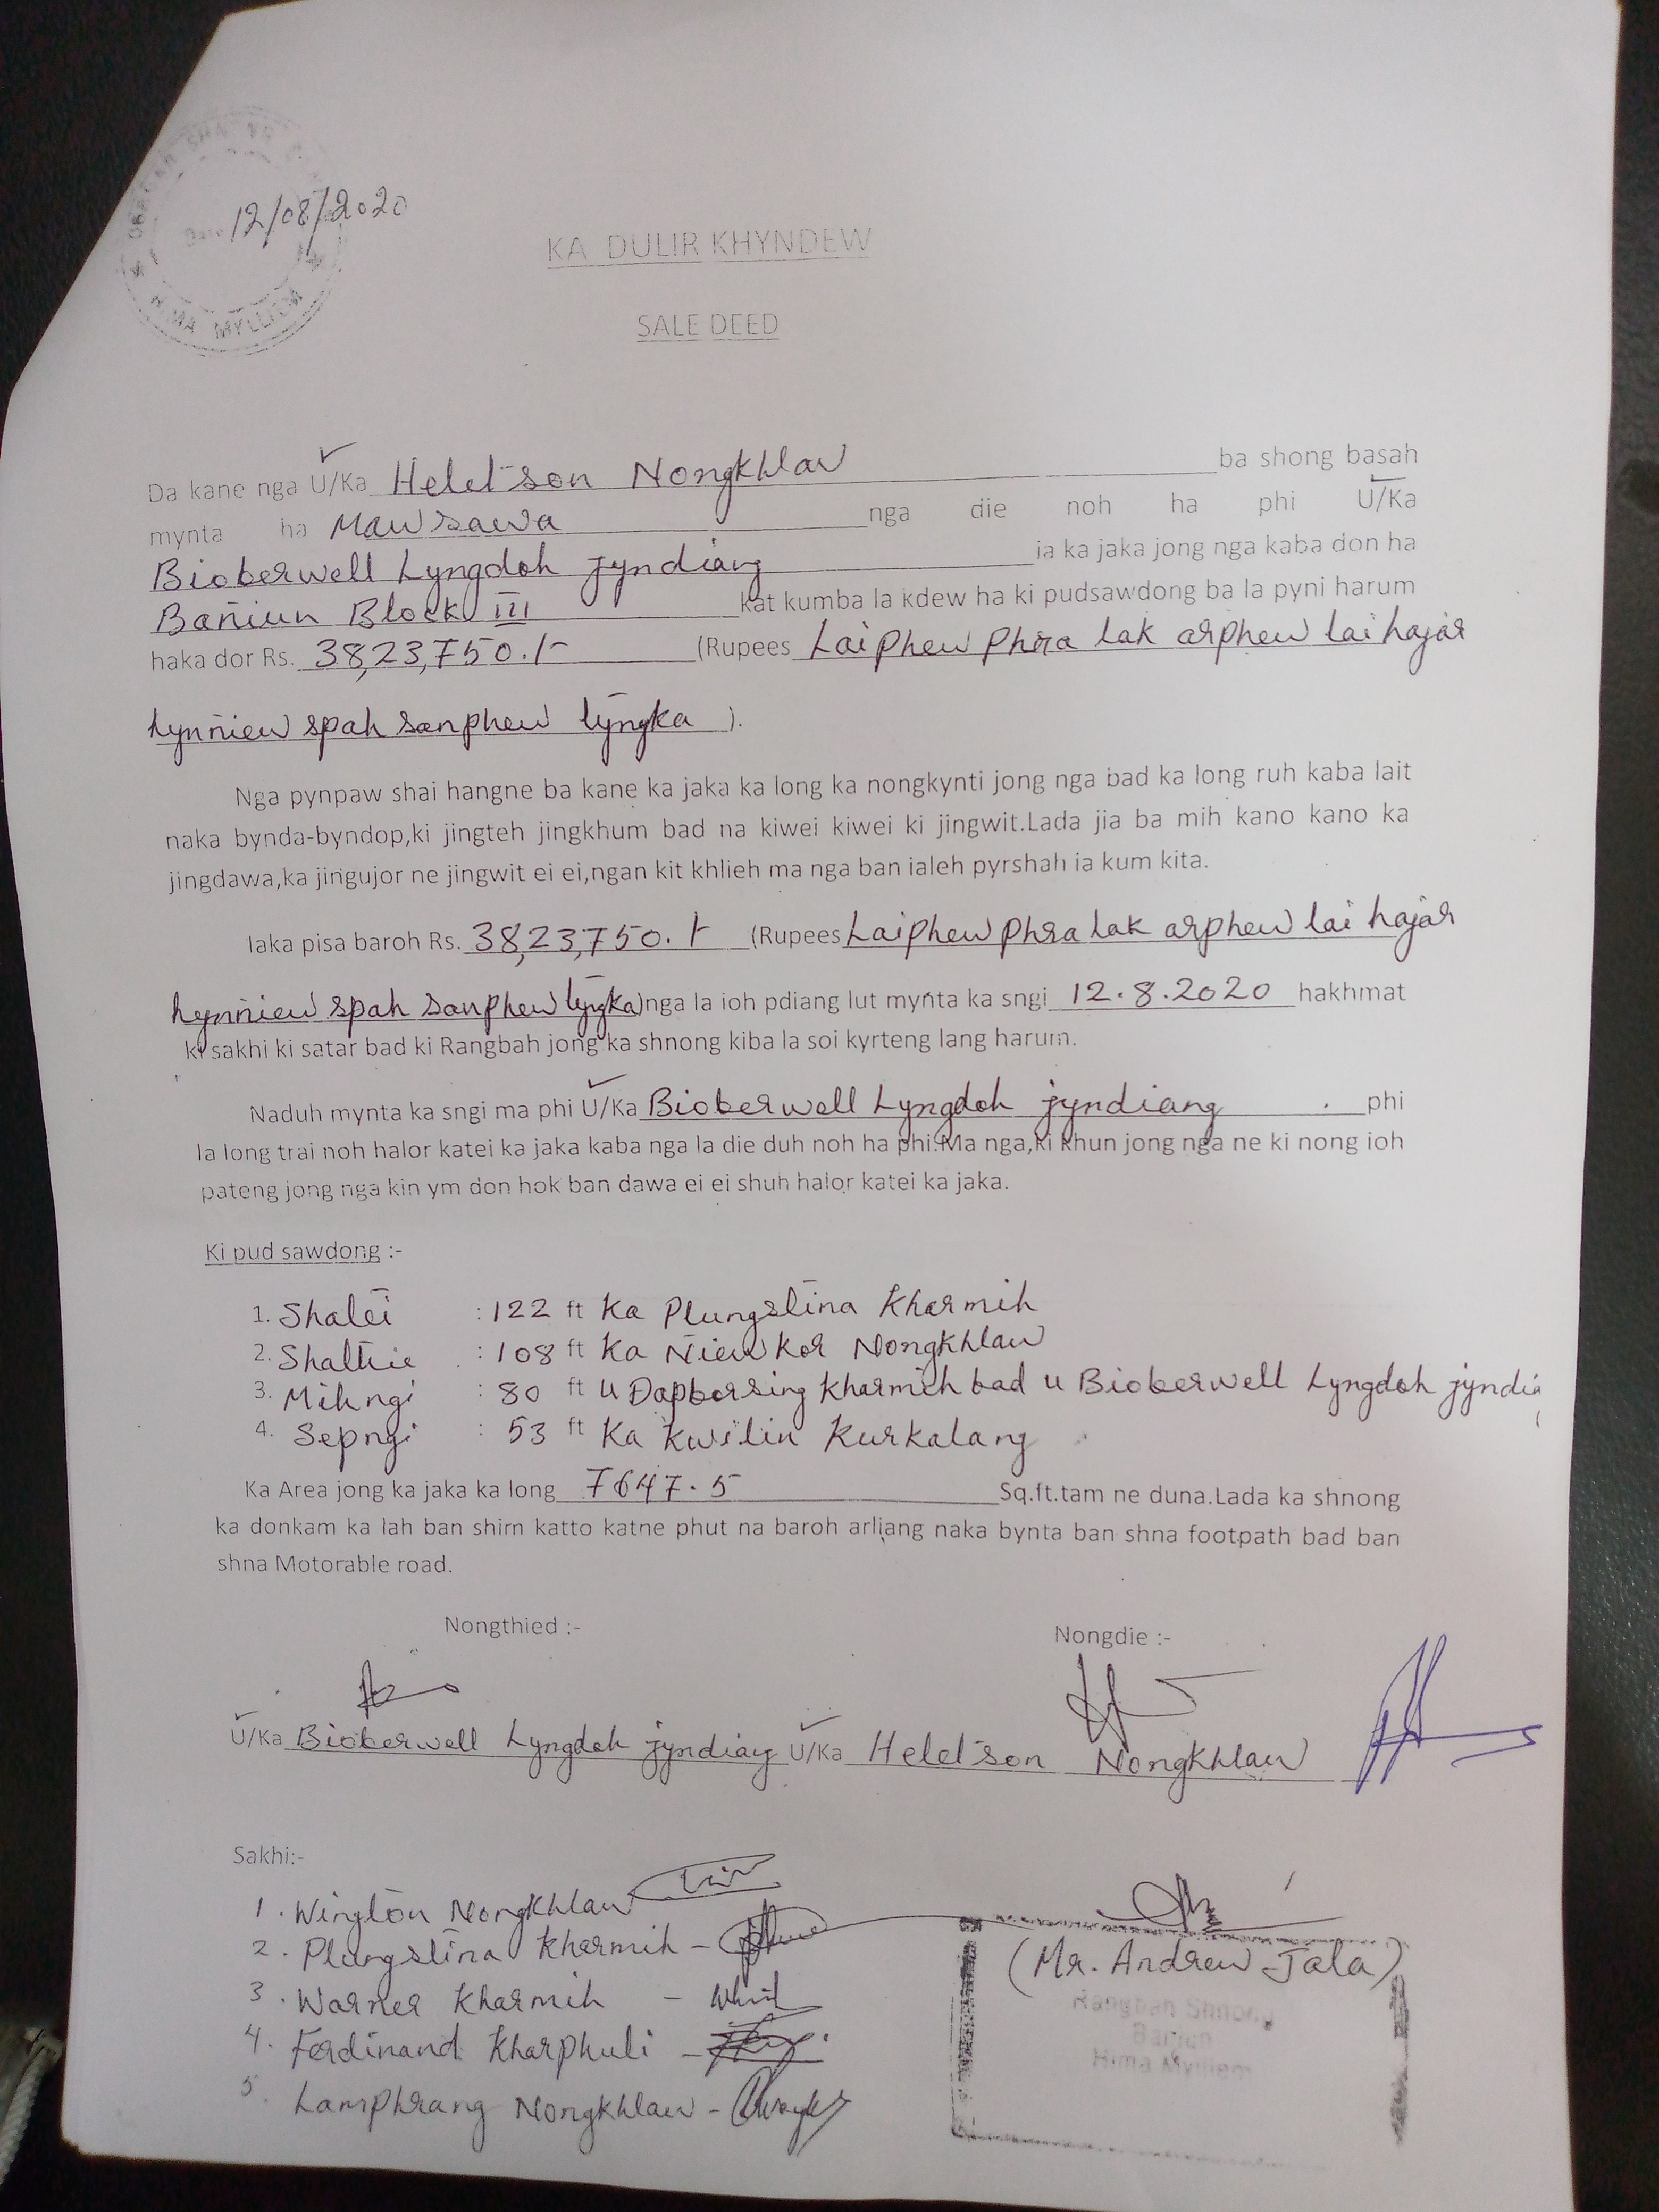 12/08/2020
HIMA MYLLIEM
KA DULIR KHYNDEW
SALE DEED
Da kane nga U/Ka Helet̄son Nongkhlaw ba shong basah
mynta ha Mawsawa nga die noh ha phi U/Ka
Bioberwell Lyngdoh jyndiang ia ka jaka jong nga kaba don ha
Bañiun Block III kat kumba la kdew ha ki pudsawdong ba la pyni harum
haka dor Rs. 38,23,750./- (Rupees Laiphew phra lak arphew lai hajar
hynñiew spah sanphew tyngka ).
Nga pynpaw shai hangne ba kane ka jaka ka long ka nongkynti jong nga bad ka long ruh kaba lait
naka bynda-byndop,ki jingteh jingkhum bad na kiwei kiwei ki jingwit.Lada jia ba mih kano kano ka
jingdawa,ka jingujor ne jingwit ei ei,ngan kit khlieh ma nga ban ialeh pyrshah ia kum kita.
Iaka pisa baroh Rs. 38,23,750./- (Rupees Laiphew phra lak arphew lai hajar
hynñiew spah sanphew tyngka)nga la ioh pdiang lut mynta ka sngi 12.8.2020 hakhmat
ki sakhi ki satar bad ki Rangbah jong ka shnong kiba la soi kyrteng lang harum.
Naduh mynta ka sngi ma phi U/Ka Bioberwell Lyngdoh jyndiang phi
la long trai noh halor katei ka jaka kaba nga la die duh noh ha phi.Ma nga,ki khun jong nga ne ki nong ioh
pateng jong nga kin ym don hok ban dawa ei ei shuh halor katei ka jaka.
Ki pud sawdong :-
1. Shatei : 122 ft Ka Plungstina Kharmih
2. Shathie : 108 ft Ka Ñiewkor Nongkhlaw
3. Mihngi : 80 ft U Dapborsing Kharmih bad u Bioberwell Lyngdoh jyndia
4. Sepngi : 53 ft Ka Kwilin Kurkalang
Ka Area jong ka jaka ka long 7647.5 Sq.ft.tam ne duna.Lada ka shnong
ka donkam ka lah ban shim katto katne phut na baroh arliang naka bynta ban shna footpath bad ban
shna Motorable road.
Nongthied :- Nongdie :-
U/Ka Bioberwell Lyngdoh jyndiang U/Ka Helet̄son Nongkhlaw
Sakhi:-
1. Wington Nongkhlaw
2. Plungstina Kharmih -
3. Warner Kharmih -
4. Ferdinand Kharphuli -
5. Lamphrang Nongkhlaw -
(Mr. Andrew Jala)
Rangbah Shnong
Baniun
Hima Mylliem